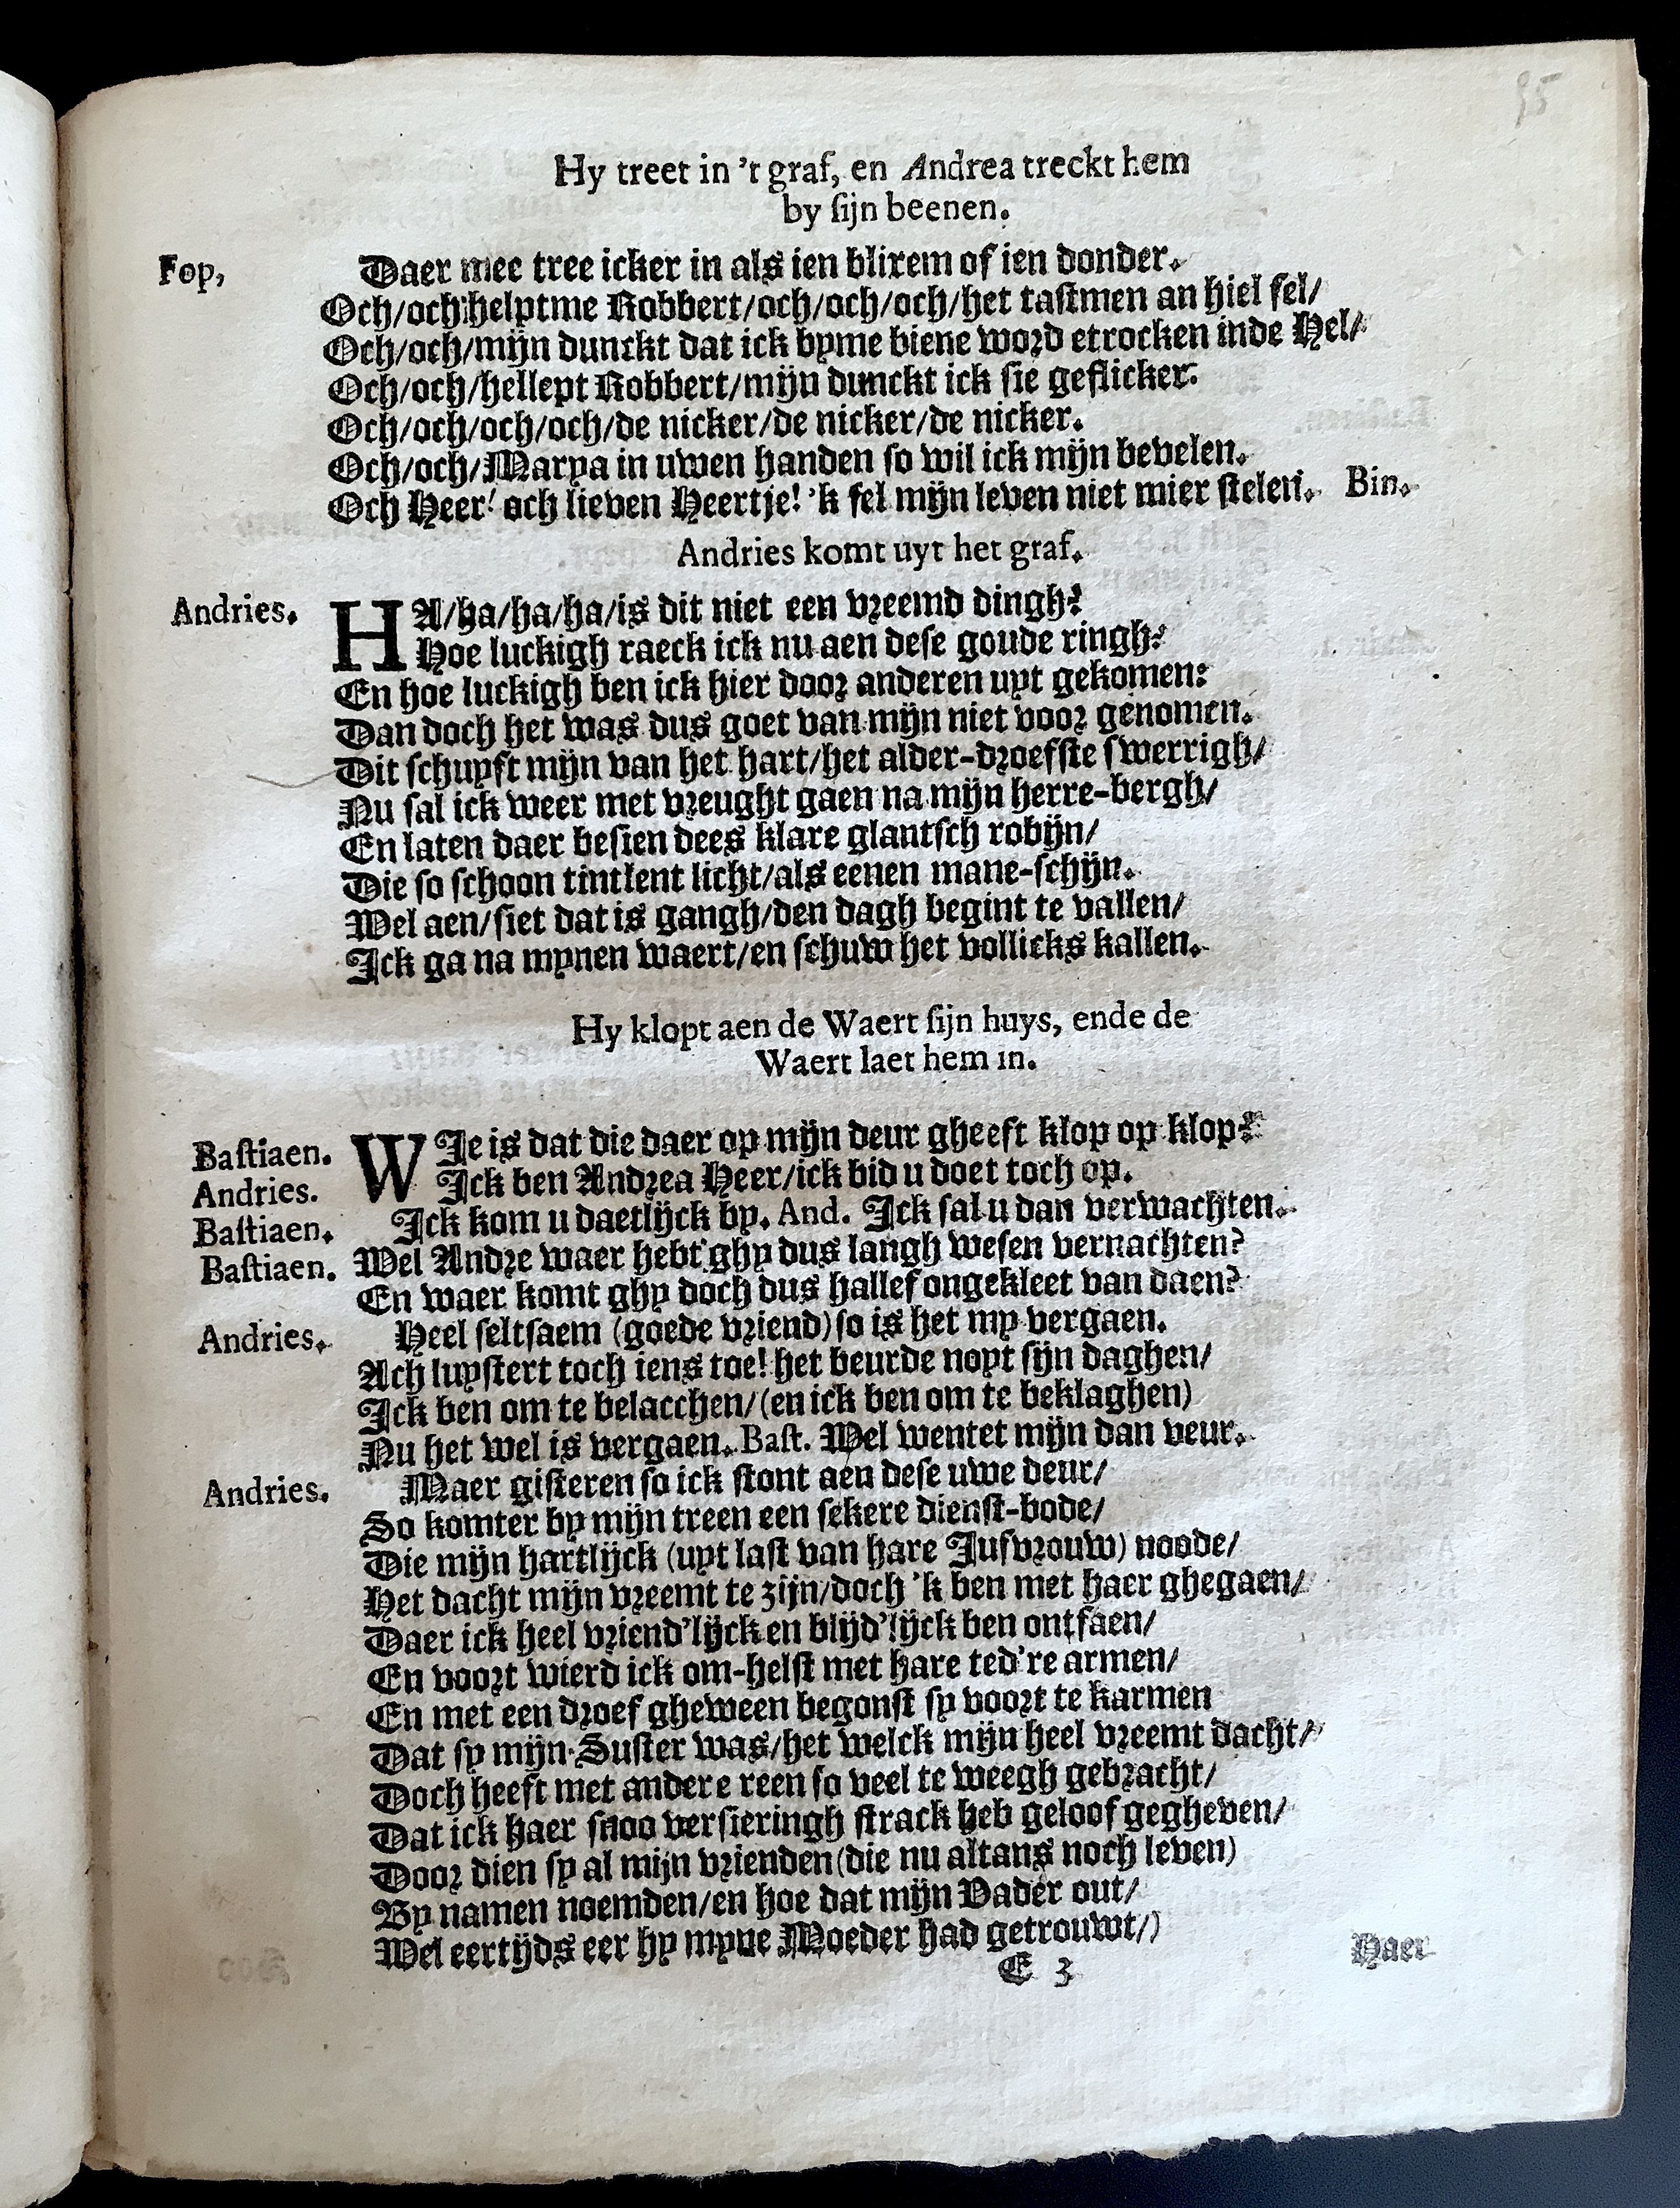 95
Hy treet in 't graf, en Andrea treckt hem
by ſijn beenen.
Fop, Daer mee tree icker in als ien blixem of ien donder.
Och/och helptme Robbert/och/och/och/het tastmen an hiel sel/
Och/och/mijn dunckt dat ick byme biene word etrocken inde Hel/
Och/och/hellept Robbert/mijn dunckt ick sie geflicker.
Och/och/och/och/de nicker/de nicker/de nicker.
Och/och/Marya in uwen handen so wil ick mijn bevelen.
Och Heer! och lieven Heertje! 'k sel mijn leven niet mier stelen. Bin.
Andries komt uyt het graf.
Andries. HA/ha/ha/ha/is dit niet een vreemd dingh?
Hoe luckigh raeck ick nu aen dese goude ringh?
En hoe luckigh ben ick hier door anderen uyt gekomen:
Dan doch het was dus goet van mijn niet voor genomen.
Dit schuyft mijn van het hart/het alder-droefste swerrigh/
Nu sal ick weer met vreught gaen na mijn herre-bergh/
En laten daer besien dees klare glantsch robijn/
Die so schoon tintlent licht/als eenen mane-schijn.
Wel aen/siet dat is gangh/den dagh begint te vallen/
Ick ga na mynen waert/en schuw het vollicks kallen.
Hy klopt aen de Waert ſijn huys, ende de
Waert laet hem in.
Baſtiaen. WIe is dat die daer op mijn deur gheeft klop op klop?
Andries. Ick ben Andrea Heer/ick bid u doet toch op.
Baſtiaen. Ick kom u daetlijck by. And. Ick sal u dan verwachten.
Baſtiaen. Wel Andre waer hebt ghy dus langh wesen vernachten?
En waer komt ghy doch dus hallef ongekleet van daen?
Andries. Heel seltsaem (goede vriend) so is het my vergaen.
Ach luystert toch iens toe! het beurde noyt sijn daghen/
Ick ben om te belacchen/(en ick ben om te beklaghen)
Nu het wel is vergaen. Baſt. Wel wentet mijn dan veur.
Andries. Maer gisteren so ick stont aen dese uwe deur/
So komter by mijn treen een sekere dienst-bode/
Die mijn hartlijck (uyt last van hare Jufvrouw) noode/
Het dacht mijn vreemt te zijn/doch 'k ben met haer ghegaen/
Daer ick heel vriend'lijck en blijd'lijck ben ontfaen/
En voort wierd ick om-helst met hare ted're armen/
En met een droef gheween begonst sy voort te karmen
Dat sy mijn Suster was/het welck mijn heel vreemt dacht/
Doch heeft met andere reen so veel te weegh gebracht/
Dat ick haer snoo versieringh strack heb geloof gegheven/
Door dien sy al mijn vrienden (die nu altans noch leven)
By namen noemden/en hoe dat mijn Vader out/
Wel eertijds eer hy myne Moeder had getrouwt/)
E 3 Haer